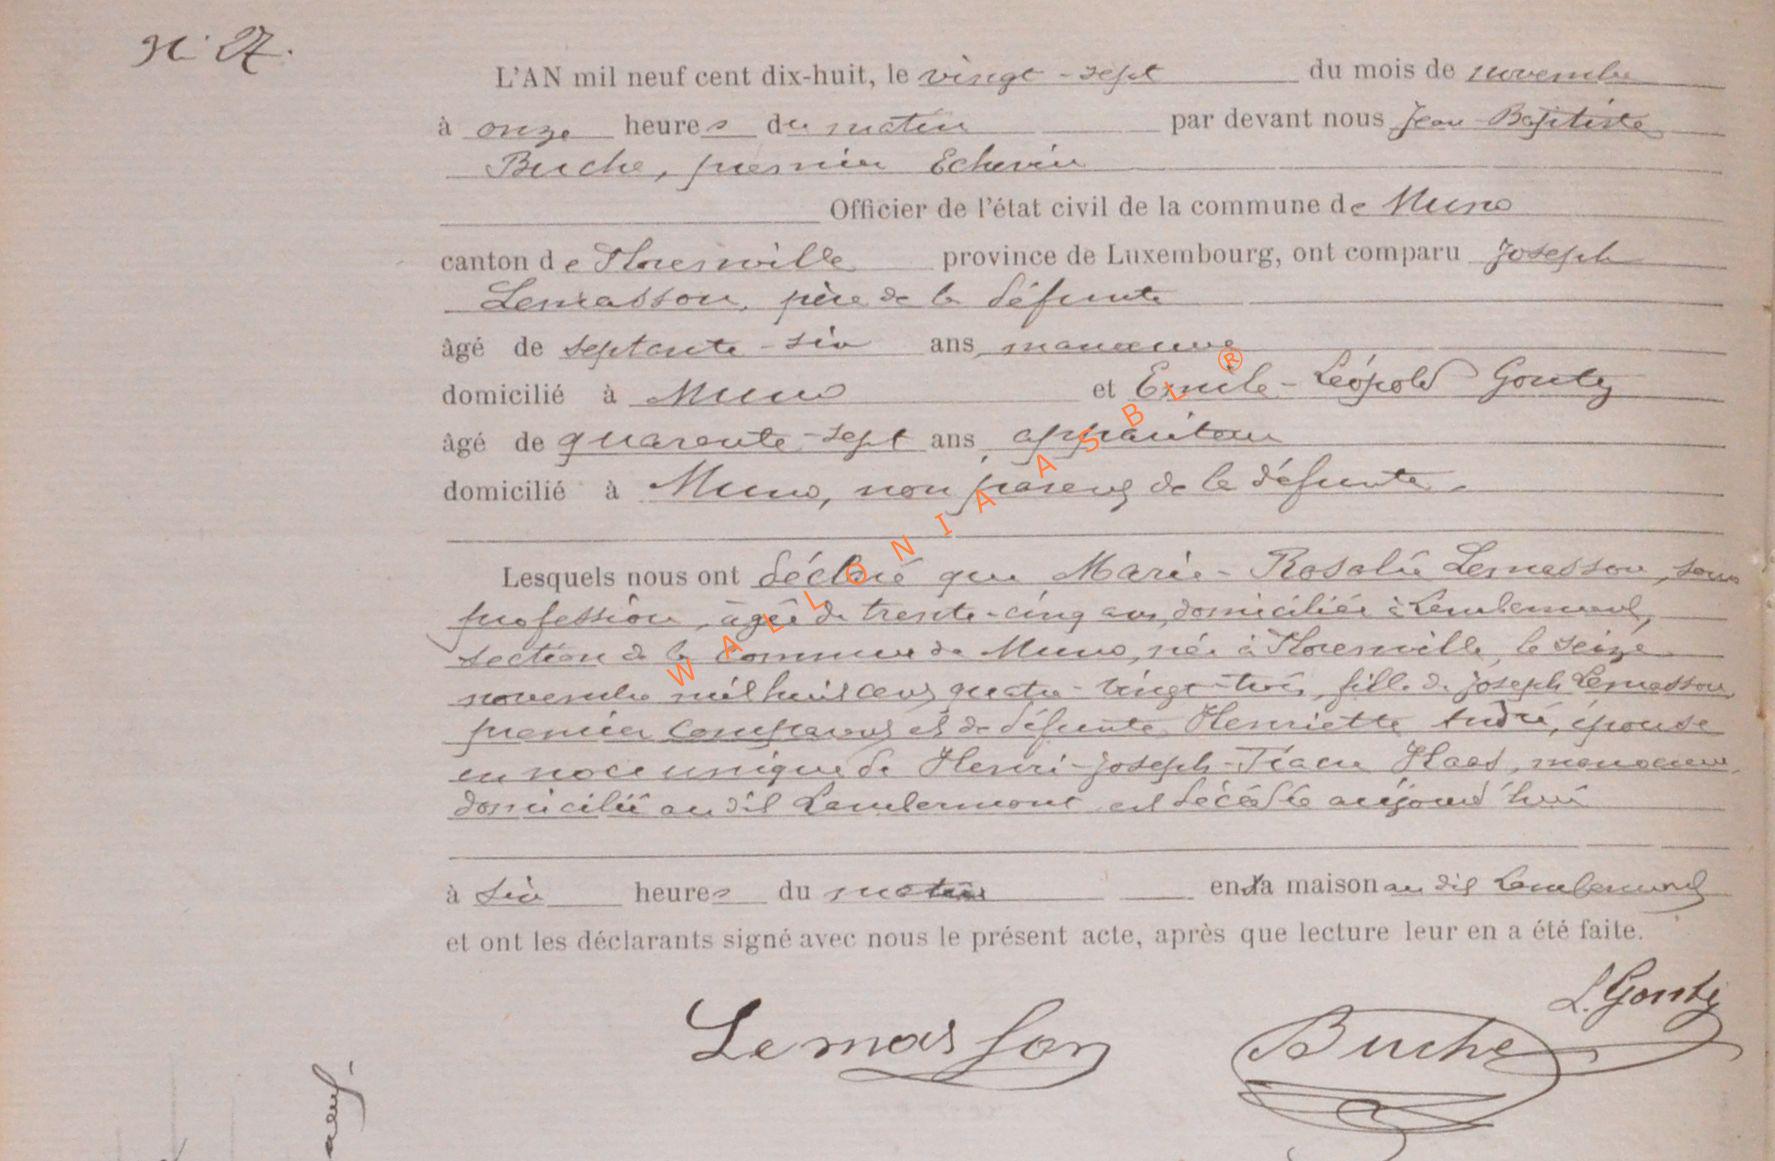 N° 27.
L'AN mil neuf cent dix-huit, le vingt-sept du mois de novembre
à onze heures du matin par devant nous Jean Baptiste
Buche, premier Echevin
Officier de l'état civil de la commune de Muno
canton de Florenville province de Luxembourg, ont comparu Joseph
Lemasson, père de la défunte
âgé de septante-six ans, manœuvre
domicilié à Muno et Emile-Léopold Gouty
âgé de quarante-sept ans, appariteur
domicilié à Muno, non parent de la défunte.
Lesquels nous ont déclaré que Marie-Rosalie Lemasson, sans
profession, âgée de trente-cinq ans, domiciliée à Lambermont,
section de la commune de Muno, née à Florenville, le seize
novembre mil huit cent quatre-vingt-trois, fille de Joseph Lemasson,
premier comparant et de défunte Henriette André, épouse
en noce unique de Henri-Joseph- Haas, manœuvre,
domicilié au dit Lambermont est décédée aujourd'hui
à six heures du matin en sa maison au dit Lambermont
et ont les déclarants signé avec nous le présent acte, après que lecture leur en a été faite.
L. Gouty
Lemasson Buche
neuf.
WALLONIA ASBL ®